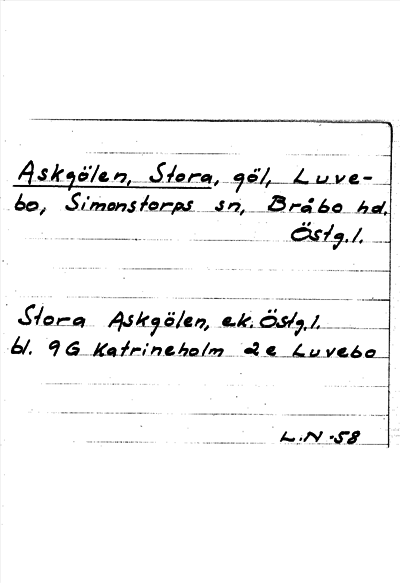 Askgölen, Stora, göl, Luve-
bo, Simonstorps sn, Bråbo hd.
Östg.l.
Stora Askgölen, ek. Östg.l.
bl. 9G Katrineholm 2e Luvebo
L.N -58